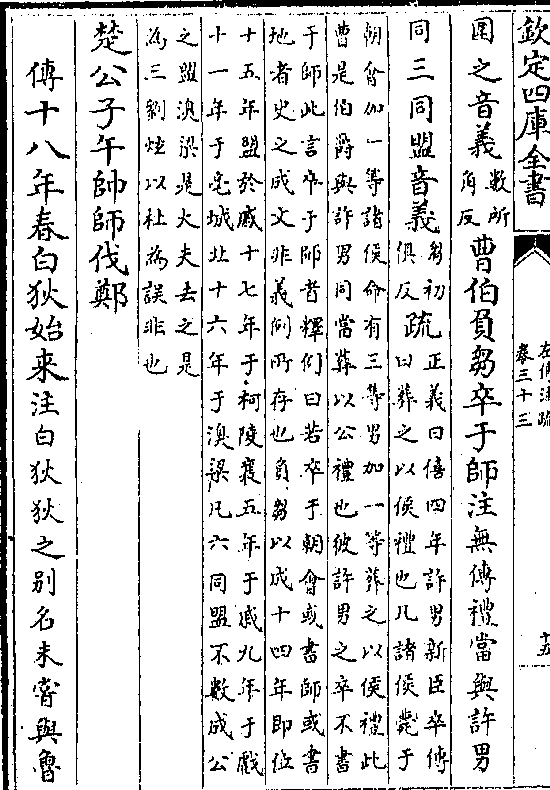 欽定四庫全書
左傳注疏
卷三十三
十五
圍之音義數所
角反
曹伯負芻卒于師注無傳禮當與許男
同三同盟音義芻初
俱反
疏正義曰僖四年許男新臣卒傳
曰葬之以侯禮也凡諸侯薨于
朝會加一等諸侯命有三等男加一等葬之以侯禮此
曹是伯爵與許男同當葬以公禮也彼許男之卒不書
于師此言卒于師者釋例曰若卒于朝會或書師或書
地者史之成文非義例所存也負芻以成十四年即位
十五年盟於戚十七年于柯陵襄五年于戚九年于戲
十一年于亳城北十六年于湨梁凡六同盟不數成公
之盟湨梁是大夫去之是
為三劉炫以杜為誤非也
楚公子午帥師伐鄭
傳十八年春白狄始来注白狄狄之别名未嘗與魯